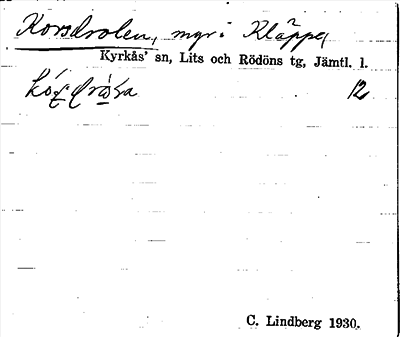 Korsdrolen, myr i Kläppe,
Kyrkås' sn, Lits och Rödöns tg, Jämtl. l.
12
C. Lindberg 1930.